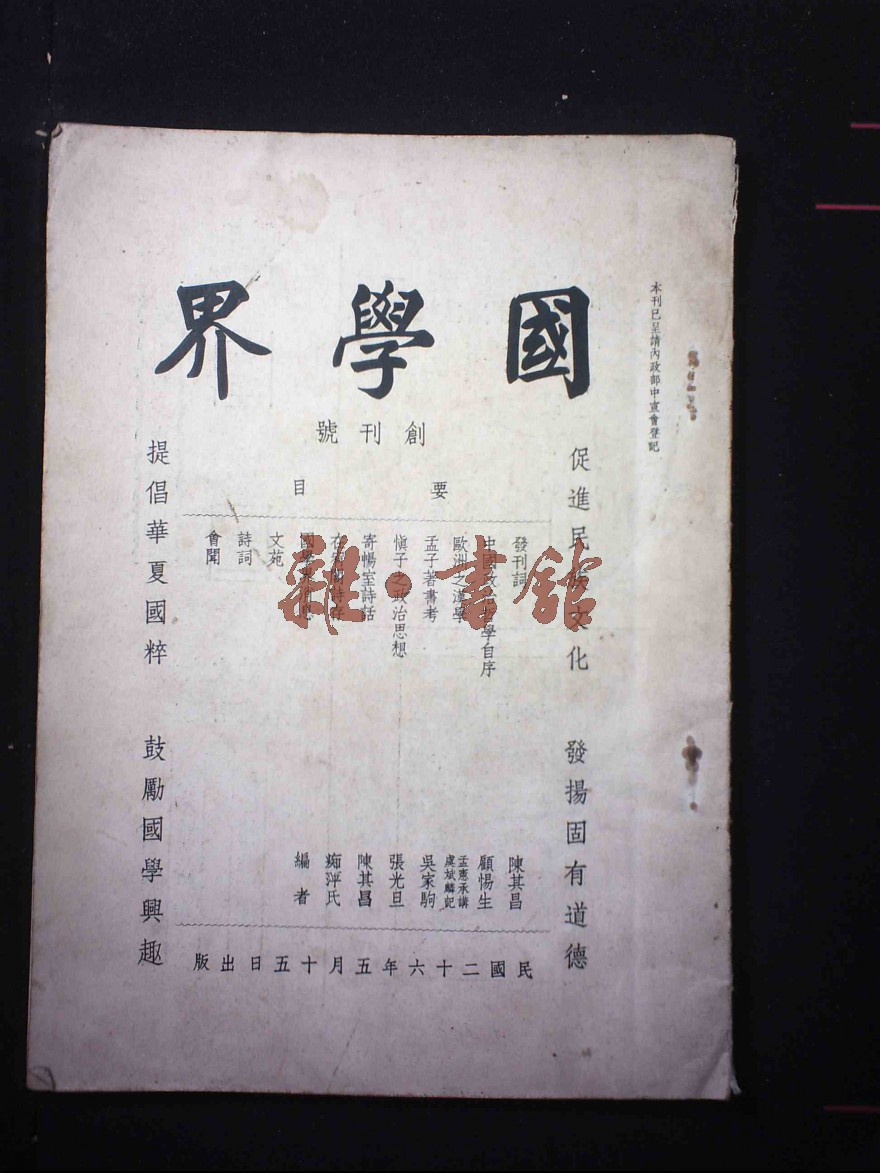 本刊已呈請內政部中宣會登記
國學界
創刊號
促進民族文化 發揚固有道德
要目
發刊詞 陳其昌
中國政治哲學自序 顧惕生
歐洲之漢學 孟憲承講 虞斌麟記
孟子著書考 吳家駒
慎子之政治思想 張光旦
寄暢室詩話 陳其昌
痴萍氏
編者
文苑
詩詞
會聞
提倡華夏國粹 鼓勵國學興趣
民國二十六年五月十五日出版
雜·書館